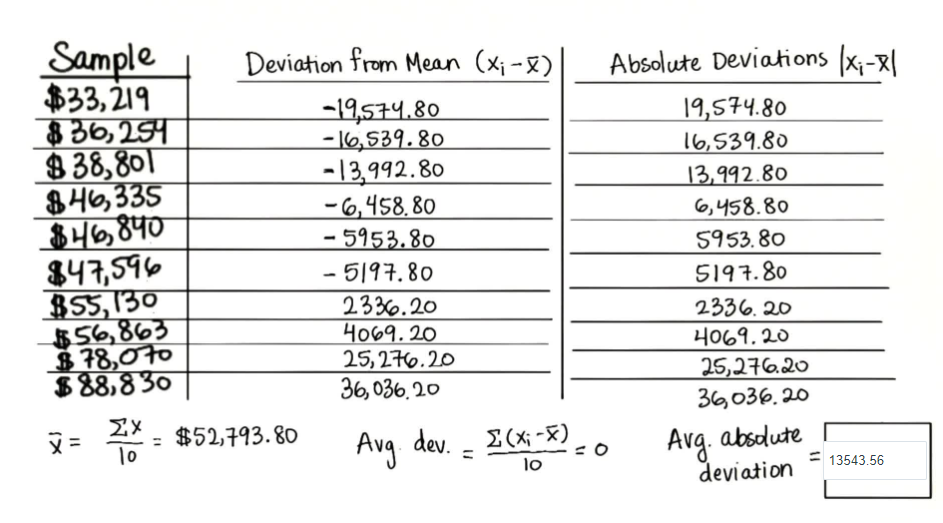 Sample Deviation from Mean (xᵢ - x̄) Absolute Deviations |xᵢ - x̄|
$33,219 -19,574.80 19,574.80
$36,254 -16,539.80 16,539.80
$38,801 -13,992.80 13,992.80
$46,335 -6,458.80 6,458.80
$46,840 -5953.80 5953.80
$47,596 -5197.80 5197.80
$55,130 2336.20 2336.20
$56,863 4069.20 4069.20
$78,070 25,276.20 25,276.20
$88,830 36,036.20 36,036.20
x̄ = Σx/10 = $52,793.80 Avg. dev. = Σ(xᵢ - x̄)/10 = 0 Avg. absolute deviation = 13543.56